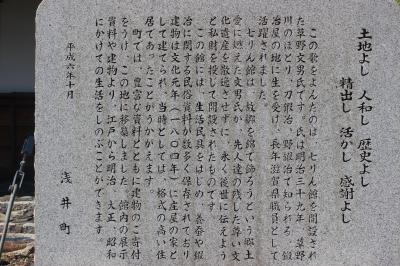 土地よし 人和し 歴史よし
精出し 活かし 感謝よし
この歌をよんだのは、七りん館を開設され
た草野文男氏です。氏は明治三十九年、草野
川のほとり、刀鍛治、野鍛治で知られる、鍛
治屋の地に生を受け、長年滋賀県職員として
活躍されました。
七りん館は、故郷を錦で飾ろうという郷土
愛に燃えた文男氏が、先人達の残した尊い文
化遺産を散逸させずに、永く後世に伝えよう
と私財を投じて開設されたものです。
この館には、生活民具をはじめ、養蚕や鍛
治に関する民俗資料が数多く保存されており
建物は文化元年(一八〇四年)に庄屋の家と
して建てられ、当時としては、格式の高い住
居であったことがうかがえます。
町では、豊富な資料とともに建物のご寄付
をうけ、この地に移築しました。館内の展示
資料や建物より、江戸から明治、大正、昭和
にかけての生活をしのぶことができます。
平成六年十月
浅井町